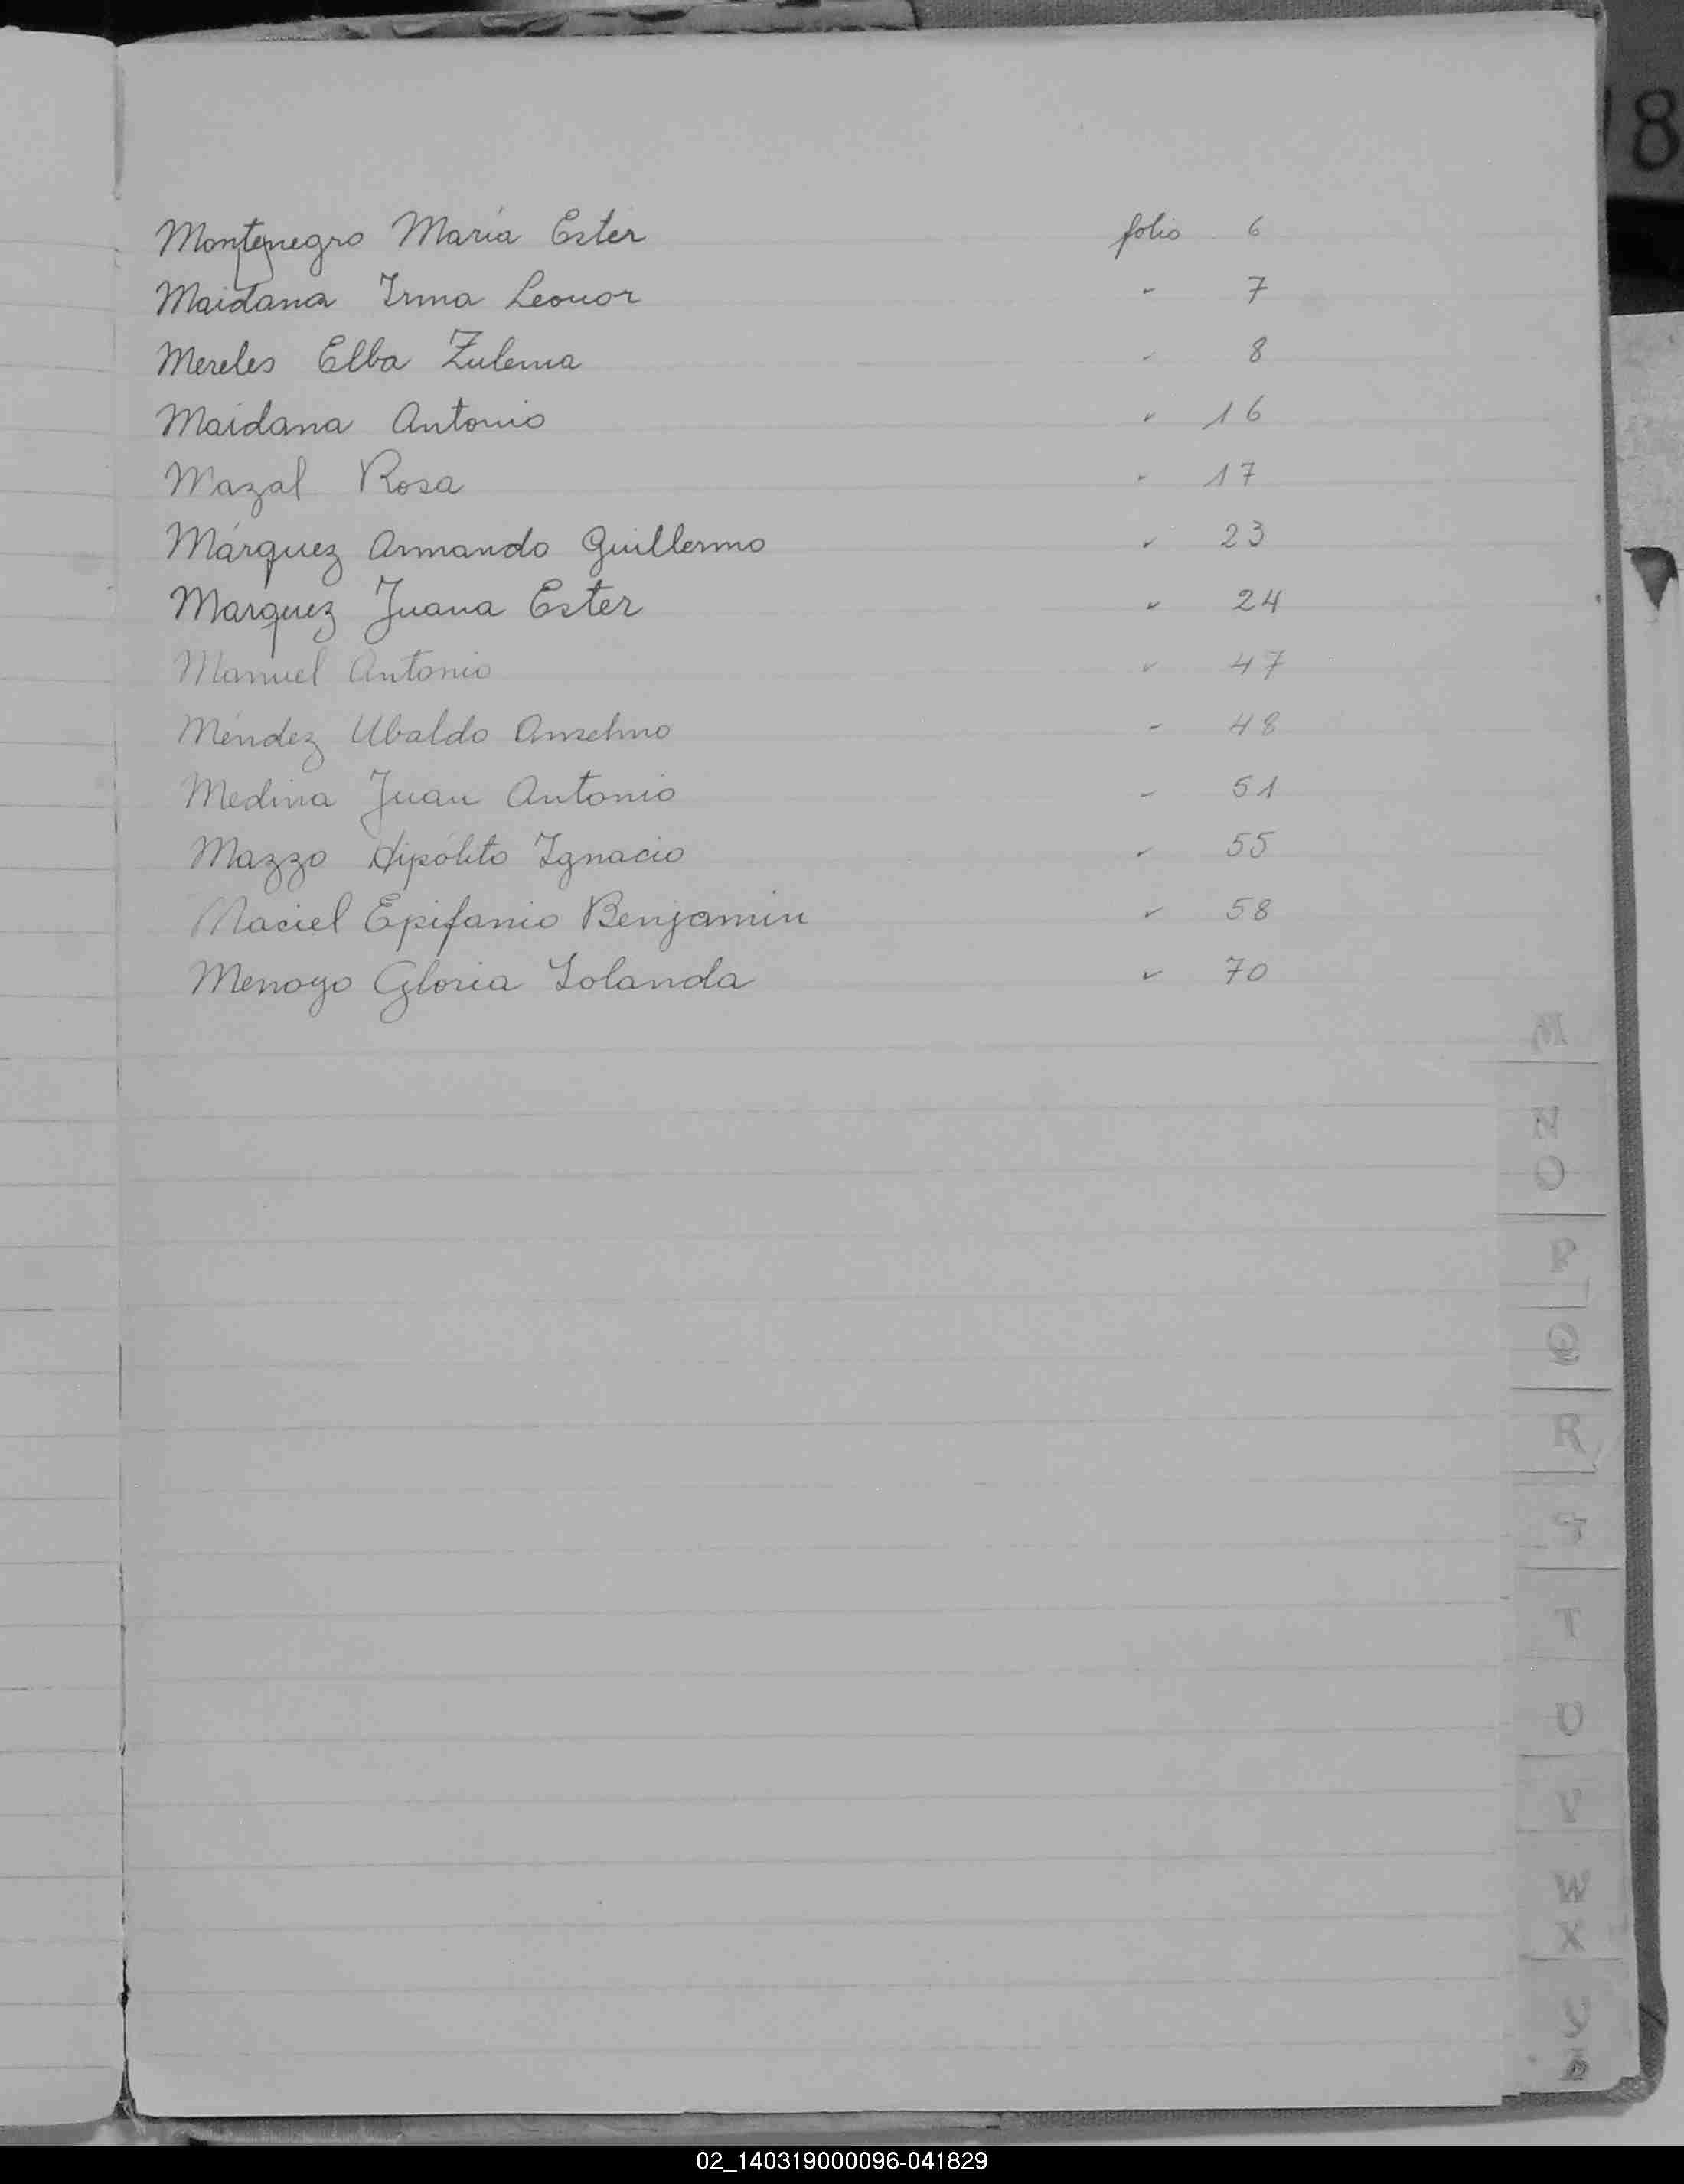 Montenegro María Ester folio 6
Maidana Irma Leonor " 7
Mereles Elba Zulema " 8
Maidana Antonio " 16
Mazal Rosa " 17
Márquez Armando Guillermo " 23
Marquez Juana Ester " 24
Manuel Antonio " 47
Méndez Ubaldo Anselmo " 48
Medina Juan Antonio " 51
Mazzo Hipólito Ignacio " 55
Maciel Epifanio Benjamin " 58
Menoyo Gloria Iolanda " 70
M
N
O
P
Q
R
S
T
U
V
W
X
Y
8
02_140319000096-041829